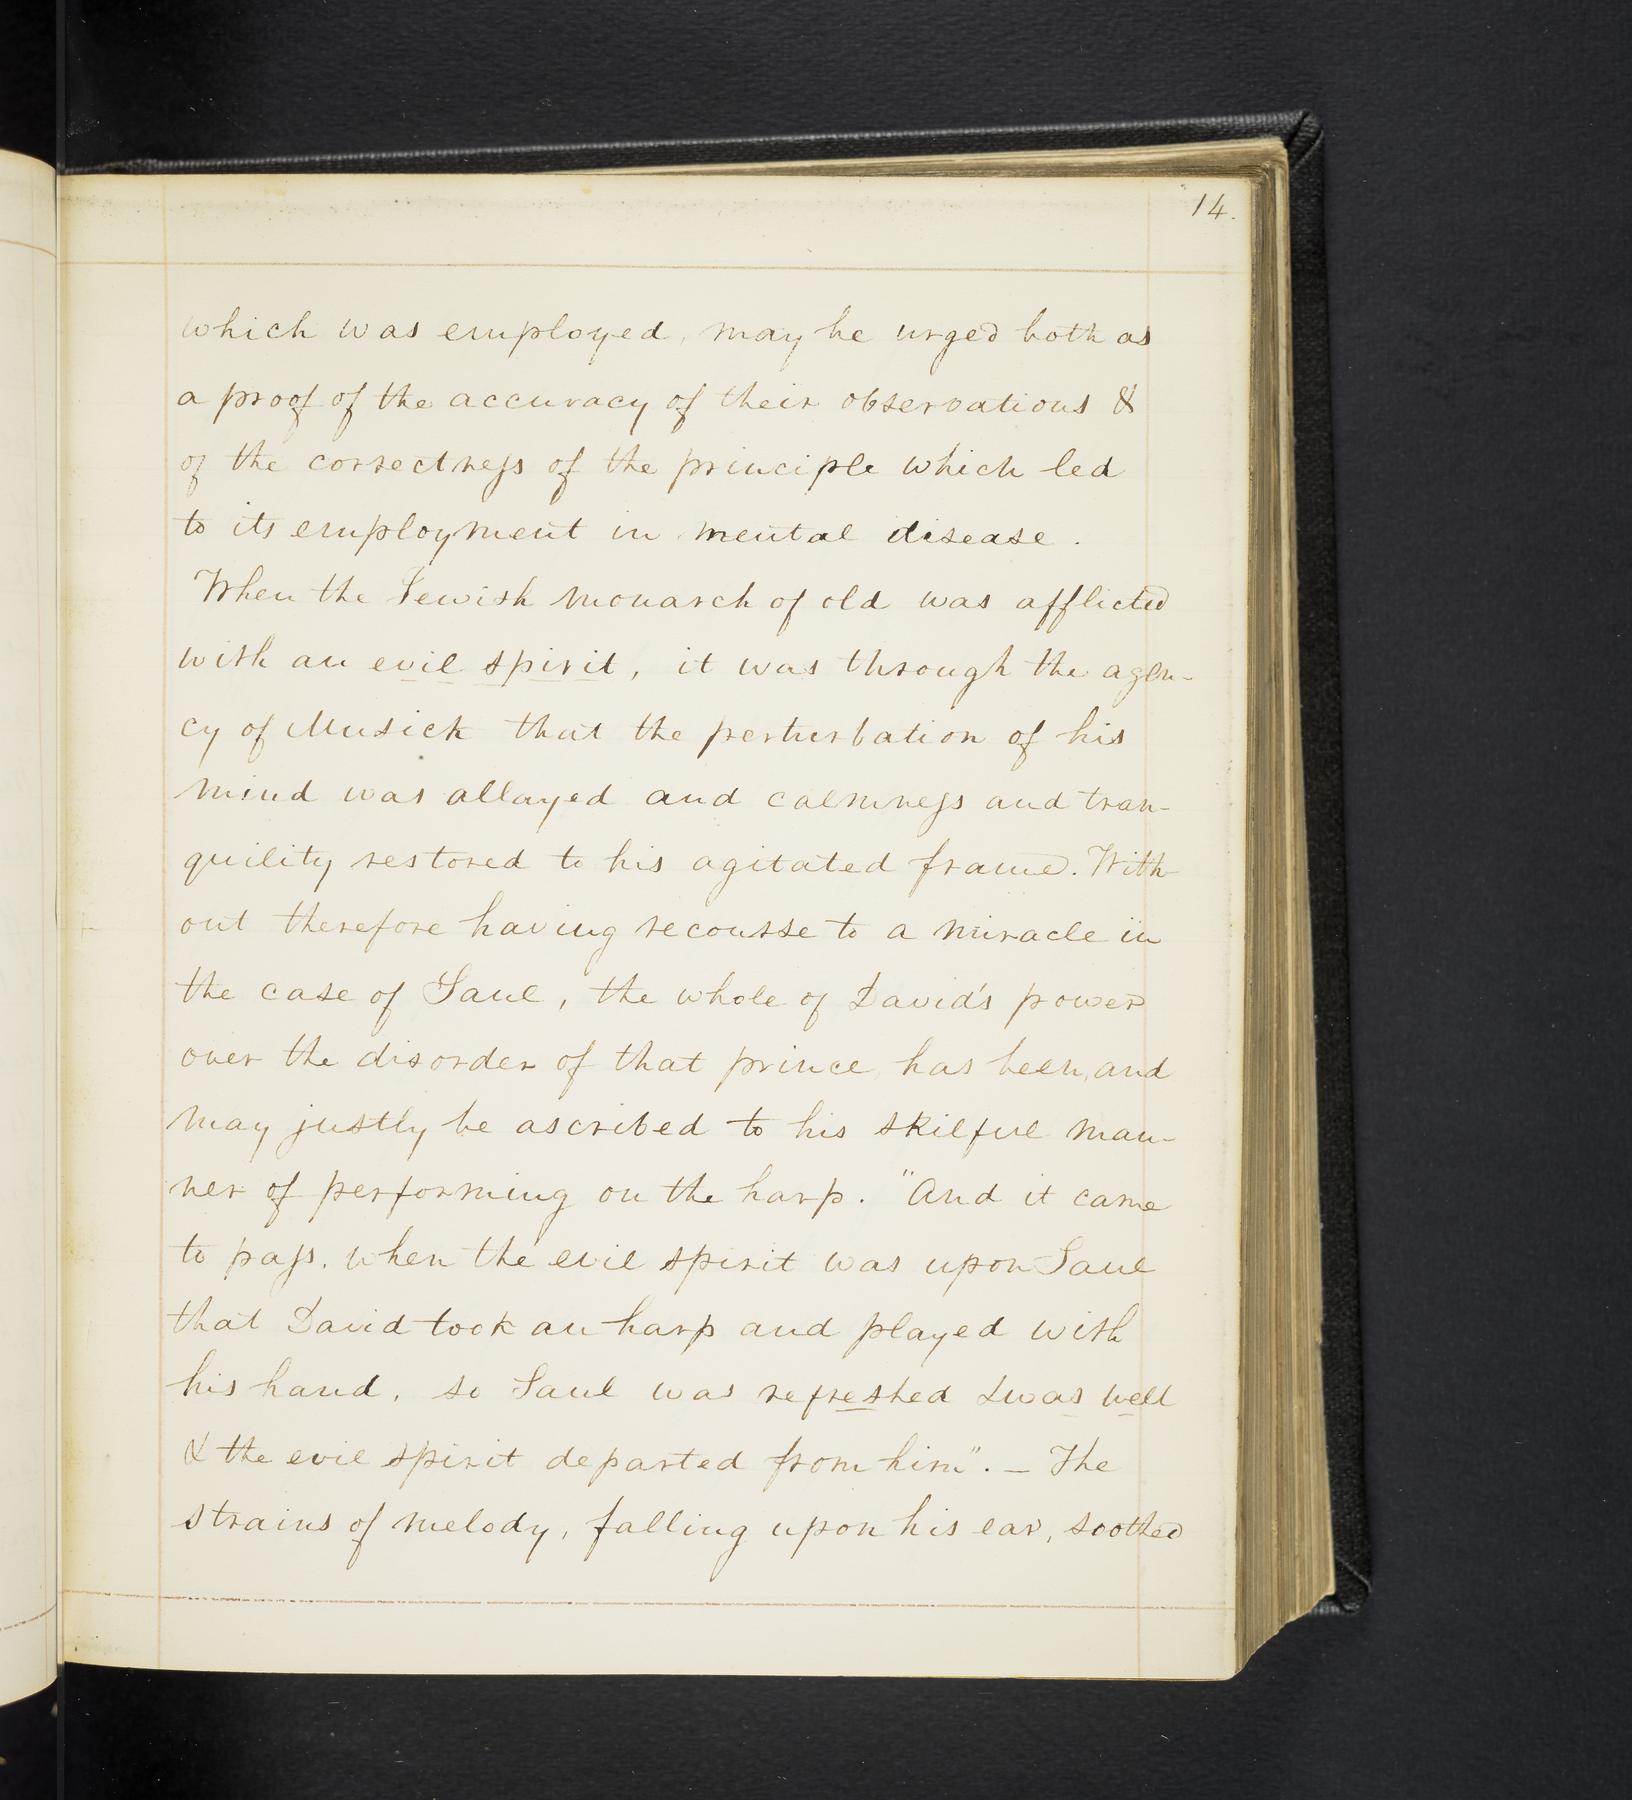 14.
which was employed, may be urged both as
a proof of the accuracy of their observations &
of the correctness of the principle which led
to its employment in mental disease.
When the Jewish monarch of old was afflicted
with an evil spirit, it was through the agen-
cy of Musick that the perturbation of his
mind was allayed and calmness and tran-
quility restored to his agitated frame. With-
out therefore having recourse to a miracle in
the case of Saul, the whole of David's power
over the disorder of that prince has been, and
may justly be ascribed to his skilful man-
ner of performing on the harp. "And it came
to pass, when the evil spirit was upon Saul
that David took an harp and played with
his hand, so Saul was refreshed & was well
& the evil spirit departed from him". — The
strains of melody, falling upon his ear, soothed